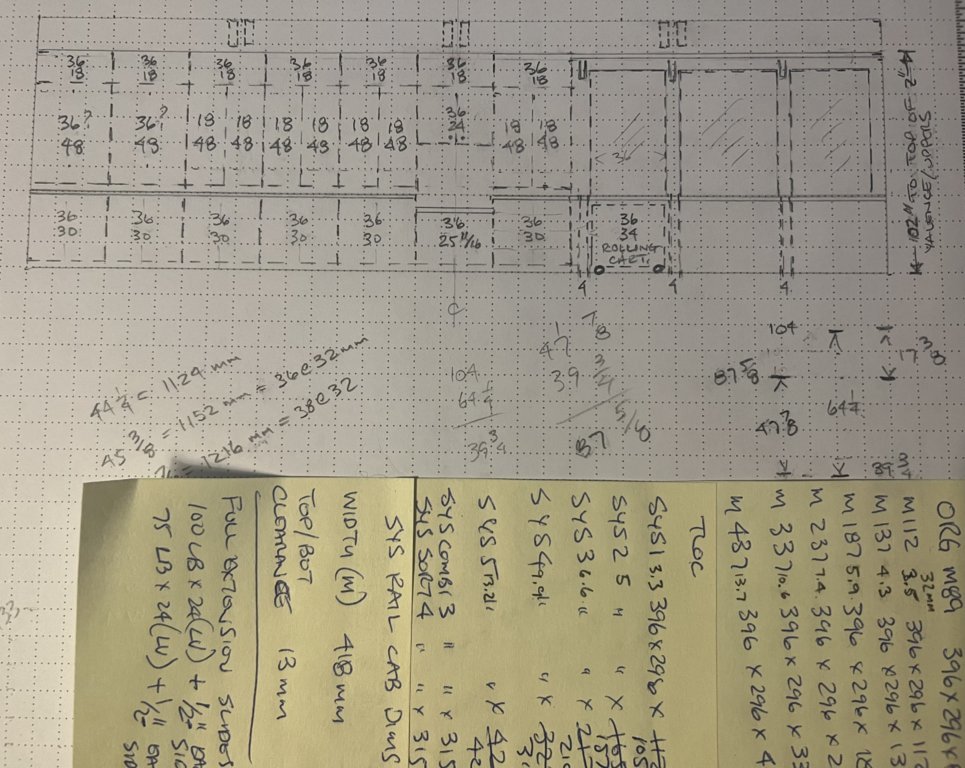 36 36 36 36 36 36 36
18 18 18 18 18 18 18
36? 36? 18 18 18 18 18 18 36 18 18
48 48 48 48 48 48 48 48 24 48 48
36
36 36 36 36 36 36 36 36
30 30 30 30 30 25 11/16 30 34
ROLLING
CART
4 4 4
102" TO TOP OF
VALENCE/SUPPORT
44 1/4 = 1124 mm
45 3/8 = 1152 mm = 36@32mm
= 1216 mm = 38@32
104
64 1/4
39 3/4
47 7/8
39 3/4
87 5/8
104
87 5/8
47 7/8
64 1/4
17 3/8
39 3/4
ORG M89 396×296×
32mm
M112 3.5 396×296×112
M137 4.3 396×296×13
M187 5.9 396×296×18
M 237 7.4 396×296×2
M 337 10.6 396×296×33
M 437 13.7 396×296×4
TLOC
SYS1 3.3 396×296×
105
SYS2 5 " " ×
SYS3 6.6 " " ×
SYS4 9.9 " " ×
SYS5 13.2 " " ×
SYSCOMBI 3 " " × 315
SYS SORT 4 " " × 315
SYS RAIL CAB DIMS
WIDTH (M) 418mm
TOP/BOT
CLEARANCE 13mm
FULL EXTENSION SLIDES
100 LB × 24(W) + 1/2" EA
75 LB × 24(W) + 1/2" EA